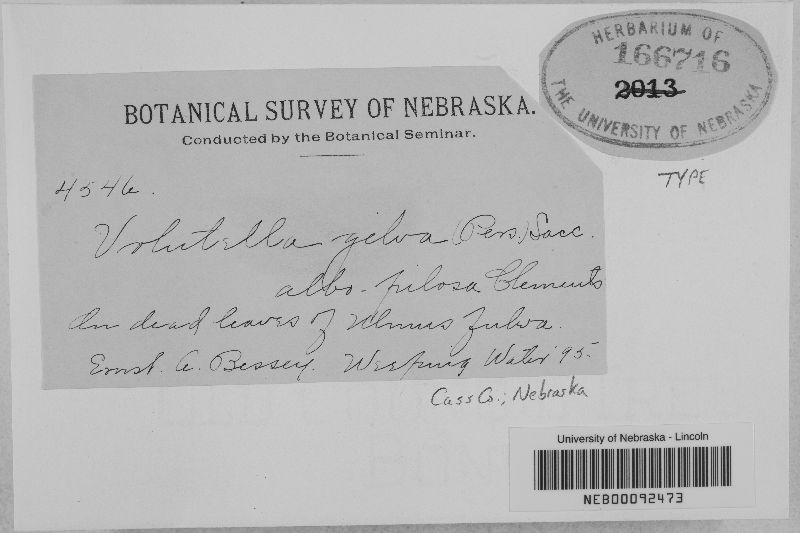 HERBARIUM OF
166716
2013
THE UNIVERSITY OF NEBRASKA
TYPE
BOTANICAL SURVEY OF NEBRASKA.
Conducted by the Botanical Seminar.
4546.
Volutella gilva (Pers.) Sacc.
albo-pilosa Clements
On dead leaves of Ulmus fulva.
Ernst. A. Bessey. Weeping Water '95.
Cass Co.; Nebraska
University of Nebraska - Lincoln
NEB00092473